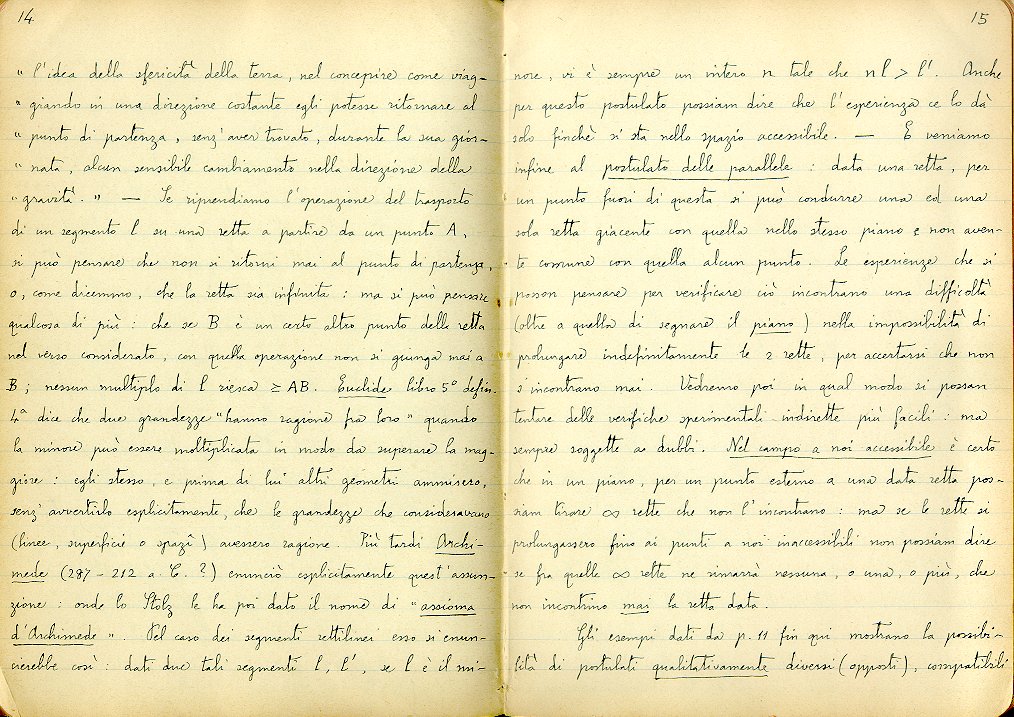 14
" l'idea della sfericità della terra, nel concepire come viag-
" giando in una direzione costante egli potesse ritornare al
" punto di partenza, senz'aver trovato, durante la sua gior-
" nata, alcun sensibile cambiamento nella direzione della
" gravità. " — Se riprendiamo l'operazione del trasporto
di un segmento l su una retta a partire da un punto A,
si può pensare che non si ritorni mai al punto di partenza,
o, come dicemmo, che la retta sia infinita : ma si può pensare
qualcosa di più : che se B è un certo altro punto della retta
nel verso considerato, con quella operazione non si giunga mai a
B ; nessun multiplo di l riesca ≥ AB. Euclide libro 5º defin.
4ª dice che due grandezze "hanno ragione fra loro" quando
la minore può essere moltiplicata in modo da superare la mag-
giore : egli stesso, e prima di lui altri geometri ammisero,
senz'avvertirlo esplicitamente, che le grandezze che consideravano
(linee, superficie o spazî) avessero ragione. Più tardi Archi-
mede (287 – 212 a. C. ?) enunciò esplicitamente quest'assun-
zione : onde lo Stolz le ha poi dato il nome di "assioma
d'Archimede". Nel caso dei segmenti rettilinei esso si enun-
cierebbe così : dati due tali segmenti l, l', se l è il mi-
15
nore, vi è sempre un intero n tale che nl > l'. Anche
per questo postulato possiam dire che l'esperienza ce lo dà
solo finchè si sta nello spazio accessibile. — E veniamo
infine al postulato delle parallele : data una retta, per
un punto fuori di questa si può condurre una ed una
sola retta giacente con quella nello stesso piano e non aven-
te comune con quella alcun punto. Le esperienze che si
posson pensare per verificare ciò incontrano una difficoltà
(oltre a quella di segnare il piano) nella impossibilità di
prolungare indefinitamente le 2 rette, per accertarsi che non
s'incontrano mai. Vedremo poi in qual modo si possan
tentare delle verifiche sperimentali indirette più facili : ma
sempre soggette a dubbi. Nel campo a noi accessibile è certo
che in un piano, per un punto esterno a una data retta pos-
siam tirare ∞ rette che non l'incontrano : ma se le rette si
prolungassero fino ai punti a noi inaccessibili non possiam dire
se fra quelle ∞ rette ne rimarrà nessuna, o una, o più, che
non incontrino mai la retta data.
Gli esempi dati da p. 11 fin qui mostrano la possibi-
lità di postulati qualitativamente diversi (opposti), compatibili